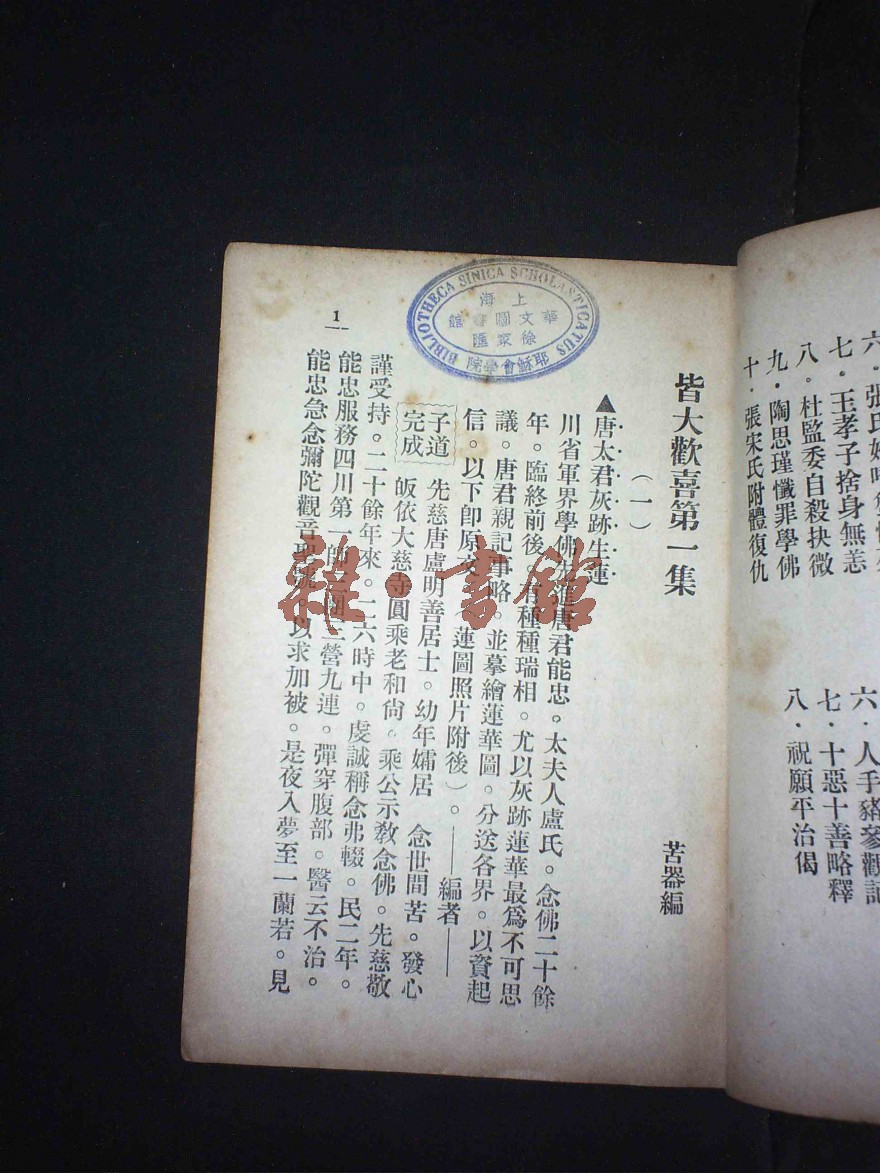 六．張氏
七．王孝子捨身無恙
八．杜監委自殺抉微
九．陶思瑾懺罪學佛
十．張宋氏附體復仇
六．人手豬參觀記
七．十惡十善略釋
八．祝願平治偈
皆大歡喜第一集
苦器編
（一）
▲唐太君灰跡生蓮
川省軍界學佛 唐君能忠。太夫人盧氏。念佛二十餘
年。臨終前後。有種種瑞相。尤以灰跡蓮華最為不可思
議。唐君親記事略。並摹繪蓮華圖。分送各界。以資起
信。以下卽原文 蓮圖照片附後）。——編者——
子道完成
先慈唐盧明善居士。幼年孀居 念世間苦。發心
皈依大慈寺圓乘老和尙。乘公示教念佛。先慈敬
謹受持。二十餘年來。二六時中。虔誠稱念弗輟。民二年。
能忠服務四川第一師 團三營九連。彈穿腹部。醫云不治。
能忠急念彌陀觀音聖號。以求加被。是夜入夢至一蘭若。見
1
BIBLIOTHECA SINICA SCHOLASTICATUS
耶穌會學院
上海
華文圖書館
徐家匯
雜·書館